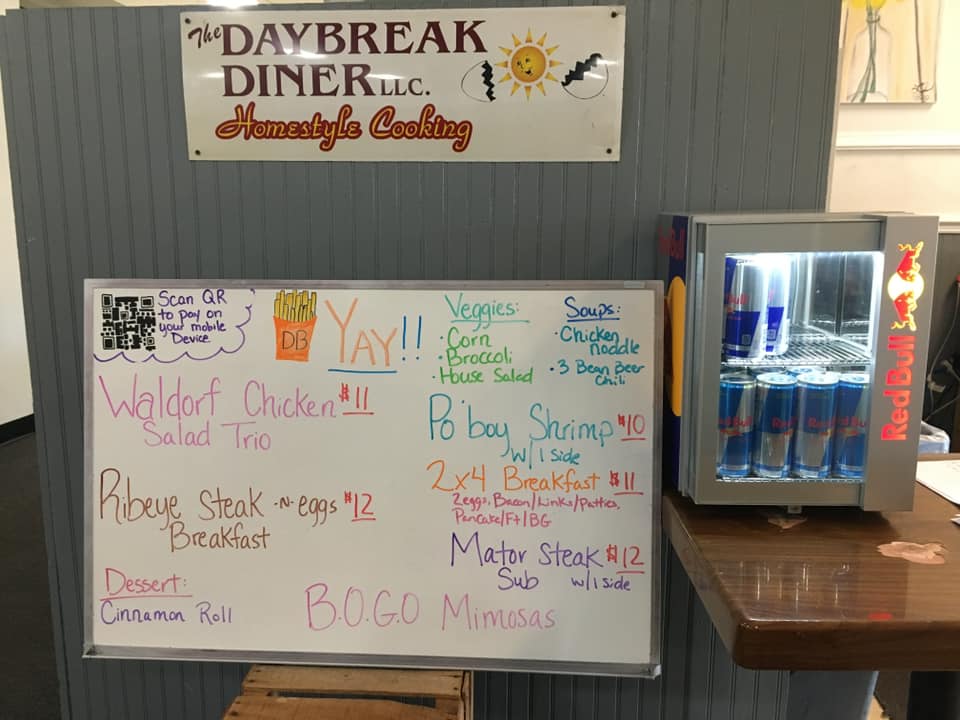 The DAYBREAK
DINER LLC.
Homestyle Cooking
Scan QR
to pay on
your mobile
Device
DB
YAY!!
Veggies:
· Corn
· Broccoli
· House Salad
Soups:
· Chicken
noddle
· 3 Bean Beer
Chili
Waldorf Chicken $11
Salad Trio
Po'boy Shrimp $10
w/1 side
Ribeye Steak -N- eggs $12
Breakfast
2x4 Breakfast $11
2eggs, Bacon/Links/Patties,
Pancake/Ft/BG
Mator Steak $12
Sub w/1 side
Dessert:
Cinnamon Roll
B.O.G.O Mimosas
Red Bull
Red Bull
Red Bull
Red Bull
Red Bull